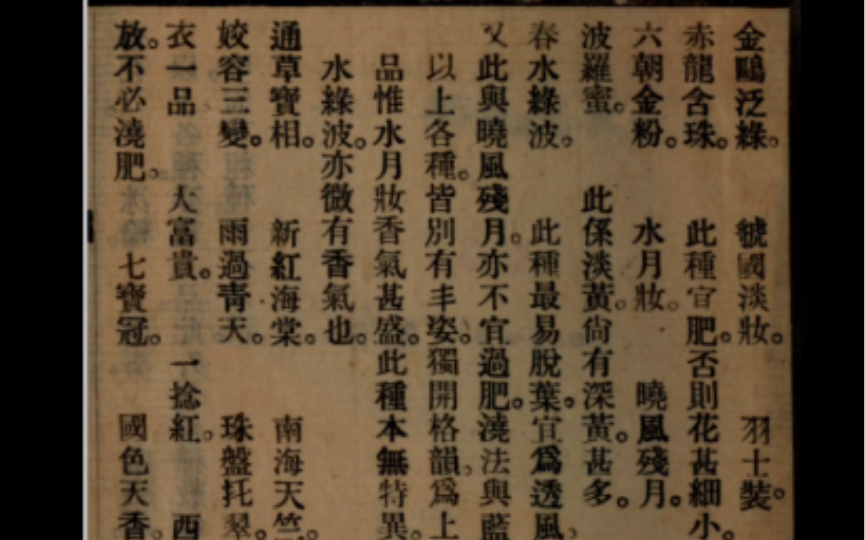 金鷗泛綠。　虢國淡妝。　羽士裝。
赤龍含珠。　此種宜肥。否則花甚細小。
六朝金粉。　水月妝。　曉風殘月。
波羅蜜。　此係淡黃。尙有深黃。甚多。
春水綠波。　此種最易脫葉。宜爲透風。
又此與曉風殘月。亦不宜過肥。澆法與藍
以上各種。皆別有丰姿。獨開格韻。爲上
品惟水月妝香氣甚盛。此種本無特異。
水綠波。亦微有香氣也。
通草寶相。　新紅海棠。　南海天竺。
姣容三變。　雨過靑天。　珠盤托翠。
衣一品　大富貴。　一捻紅。　西
放。不必澆肥。　七寶冠。　國色天香。